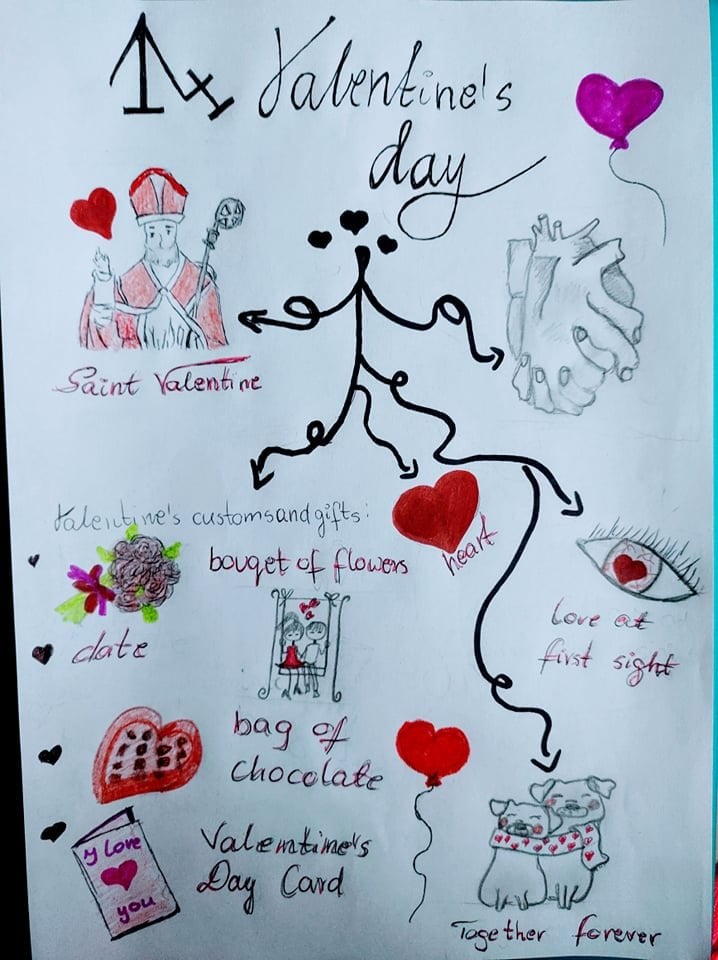 14 Valentine's
day
Saint Valentine
Valentine's customs and gifts:
bouqet of flowers
heart
love at
first sight
date
bag of
chocolate
y love
you
Valentine's
Day Card
Together forever